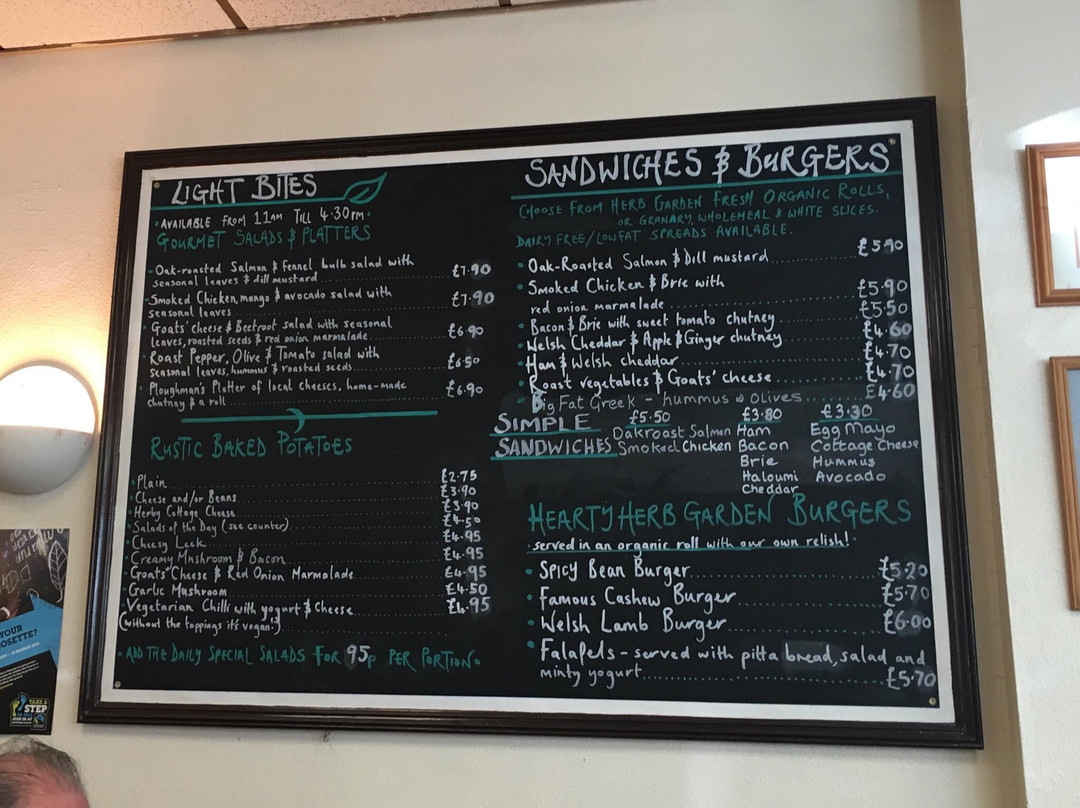 LIGHT BITES
• AVAILABLE FROM 11AM TILL 4·30PM •
GOURMET SALADS & PLATTERS
Oak-roasted Salmon & fennel bulb salad with
seasonal leaves & dill mustard £7.90
Smoked Chicken, mango & avocado salad with
seasonal leaves £7.90
Goats' cheese & Beetroot salad with seasonal
leaves, roasted seeds & red onion marmalade £6.90
Roast Pepper, Olive & Tomato salad with
seasonal leaves, hummus & roasted seeds £6.50
Ploughman's Platter of local cheeses, home-made
chutney & a roll £6.90
RUSTIC BAKED POTATOES
• Plain £2.75
• Cheese and/or Beans £3.90
• Herby Cottage Cheese £3.90
• Salads of the Day (see counter) £4.50
• Cheesy Leek £4.95
• Creamy Mushroom & Bacon £4.95
• Goats' Cheese & Red Onion Marmalade £4.95
• Garlic Mushroom £4.50
• Vegetarian Chilli with yogurt & Cheese £4.95
(without the toppings it's vegan!)
• ADD THE DAILY SPECIAL SALADS FOR 95p PER PORTION •
SANDWICHES & BURGERS
CHOOSE FROM HERB GARDEN FRESH ORGANIC ROLLS,
OR GRANARY, WHOLEMEAL & WHITE SLICES.
DAIRY FREE/LOWFAT SPREADS AVAILABLE.
• Oak-Roasted Salmon & Dill mustard £5.90
• Smoked Chicken & Brie with
red onion marmalade £5.90
• Bacon & Brie with sweet tomato chutney £5.50
• Welsh Cheddar & Apple & Ginger chutney £4.60
• Ham & Welsh cheddar £4.70
• Roast vegetables & Goats' cheese £4.70
• Big Fat Greek - hummus & olives £4.60
SIMPLE
SANDWICHES
£5.50
Oakroast Salmon
Smoked Chicken
£3.80
Ham
Bacon
Brie
Haloumi
Cheddar
£3.30
Egg Mayo
Cottage Cheese
Hummus
Avocado
HEARTY HERB GARDEN BURGERS
served in an organic roll with our own relish!
• SPICY BEAN BURGER £5.20
• FAMOUS CASHEW BURGER £5.70
• WELSH LAMB BURGER £6.00
• FALAFELS - served with pitta bread, salad and
minty yogurt £5.70
YOUR
ROSETTE?
TAKE A
STEP